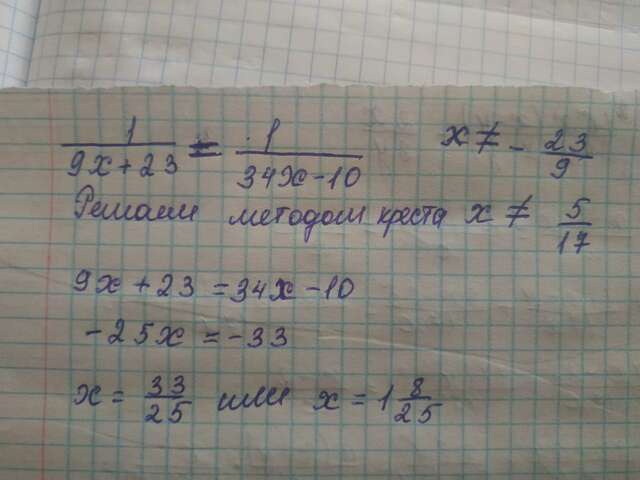 1/(9x+23) = 1/(34x-10) x ≠ - 23/9
Решаем методом креста x ≠ 5/17
9x + 23 = 34x - 10
-25x = -33
x = 33/25 или x = 1 8/25